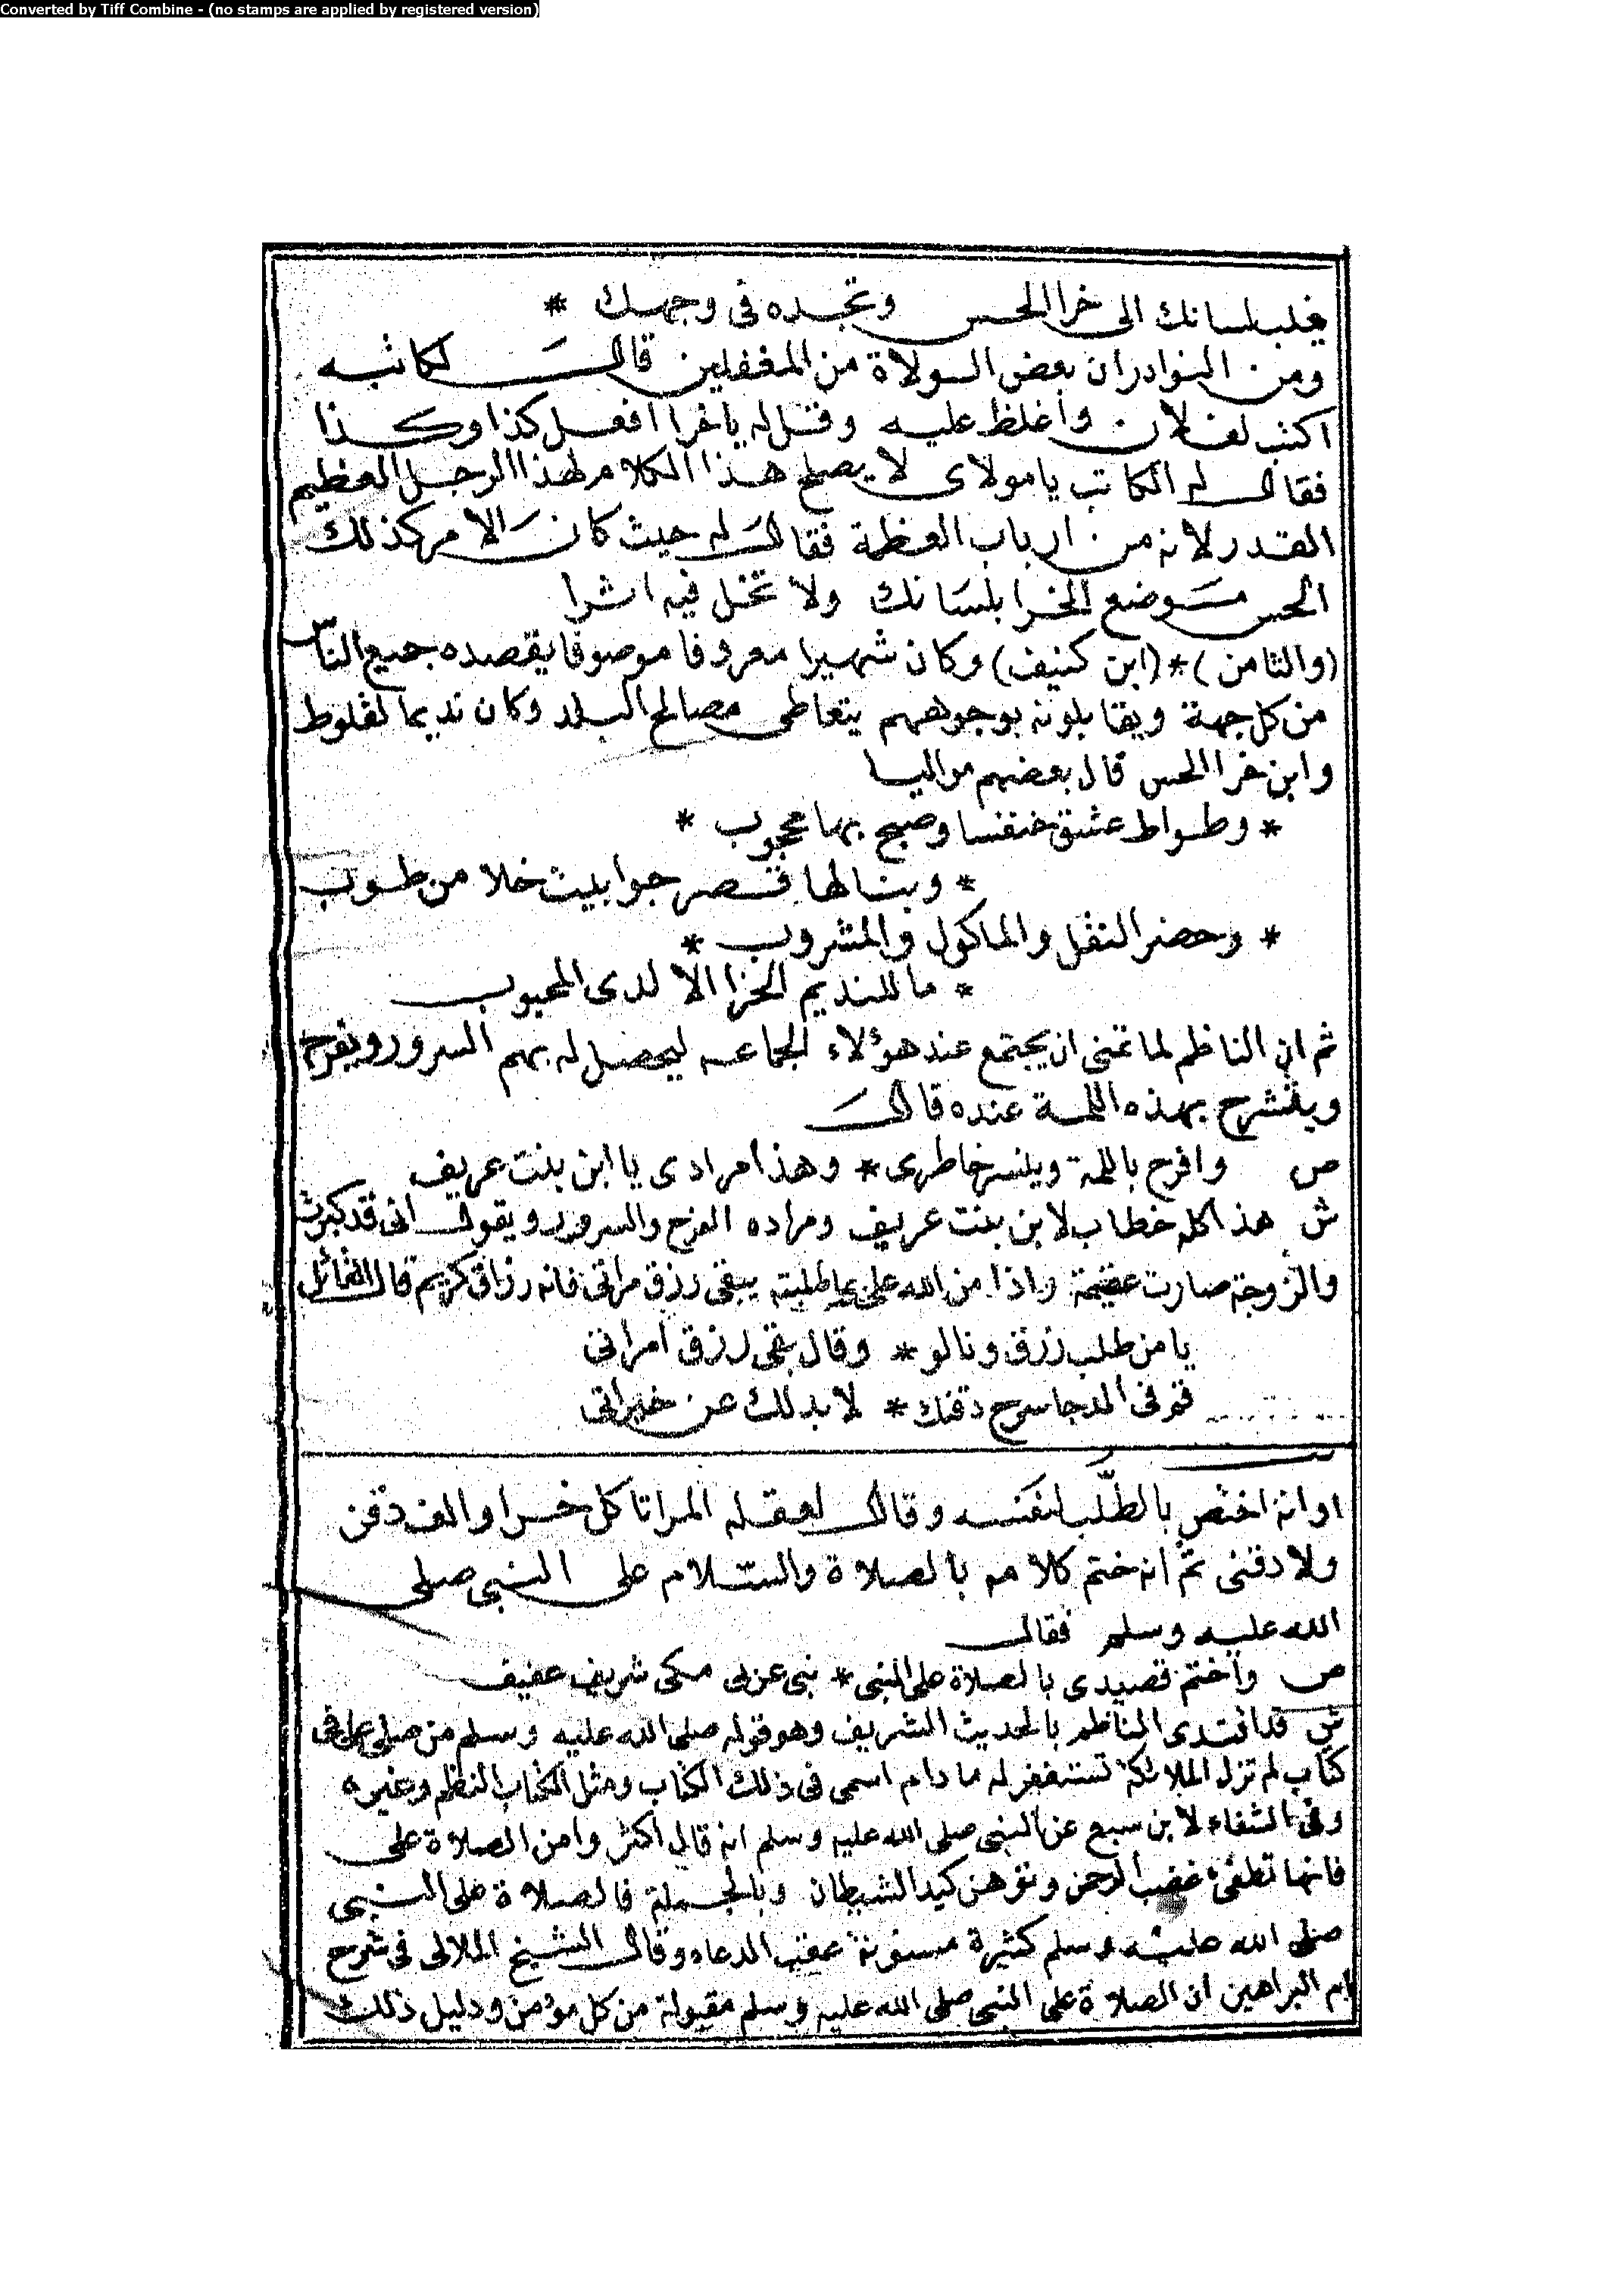 Converted by Tiff Combine - (no stamps are applied by registered version)
يغلب لسانك الى خرا الحس وتجده فى وجهك *
ومن النوادر ان بعض الولاة من المغفلين قال لكاتبه
اكتب لفلان واغلظ عليه وقل له ياخرا افعل كذا وكذا
فقال له الكاتب يا مولاى لا يصلح هذا الكلام لهذا الرجل العظيم
القدر لانه من ارباب العظمة فقال له حيث كان الامر كذلك
الحس موضع الخرا بلسانك ولا تخل فيه اثرا
(والثامن) * (ابن كنيف) وكان شهيرا معروفا موصوفا يقصده جميع الناس
من كل جهة ويقابلونه بوجوههم يتعاطى مصالح البلد وكان نديما لفلوط
وابن خرا الحس قال بعضهم مواليا
* وطواط عشق خنفسا وصبح بها محجوب *
* وبنا لها قصر جوا بيت خلا من طوب
* وحضر النقل والماكول والمشروب *
* ما للنديم الخرا الا لدى المحبوب
ثم ان الناظم لما تمنى ان يجتمع عند هؤلاء الجماعه ليحصل له بهم السرور ويفرح
وينشرح بهذه اللمة عنده قال
ص وافرح باللمة وينسر خاطرى * وهذا مرادى يا ابن بنت عريف
ش هذا كله خطاب لابن بنت عريف ومراده الفرح والسرور ويقول انى قد كبرت
والزوجة صارت عقيمة واذا من الله على بما طلبته يبقى رزق مراتى فانه رزاق كريم قال القائل
يا من طلب رزق ونالو * وقال بقى رزق امراتى
قم فى الدجا سرح دقنك * لا بد لك عن خيراتى
او انه اختص بالطلب لنفسه وقال لعقله المراتاكل خرا والف دقن
ولا دقنى ثم انه ختم كلامه بالصلاة والسلام على النبى صلى
الله عليه وسلم فقال
ص واختم قصيدى بالصلاة على النبى * نبى عربى مكى شريف عفيف
ش قد اقتدى الناظم بالحديث الشريف وهو قوله صلى الله عليه وسلم من صلى على فى
كتاب لم تزل الملائكة تستغفر له ما دام اسمى فى ذلك الكتاب ومثل الكتاب النظم وغيره
وفى الشفاء لابن سبع عن النبى صلى الله عليه وسلم انه قال اكثروا من الصلاة على
فانها تطفئ غضب الرحمن وتوهن كيد الشيطان وبالجملة فالصلاة على النبى
صلى الله عليه وسلم كثيرة مسنونة عقب الدعاء وقال الشيخ الملالى فى شرح
ام البراهين ان الصلاة على النبى صلى الله عليه وسلم مقبولة من كل مؤمن ودليل ذلك